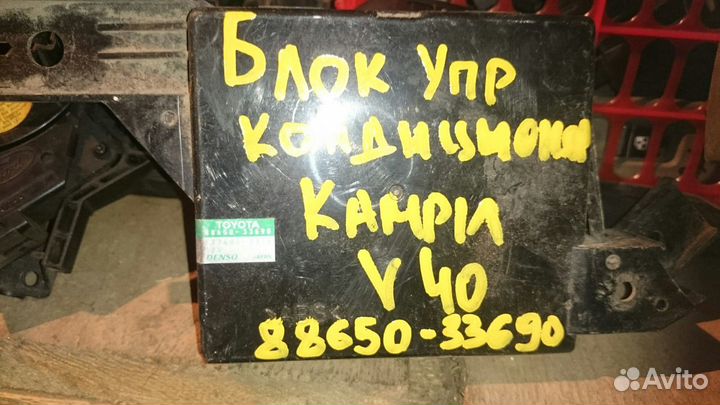 БЛОК УПР
КОНДИЦИОНИ
КАМРИ
V 40
88650-33690
TOYOTA
88650-33690
DENSO
Avito